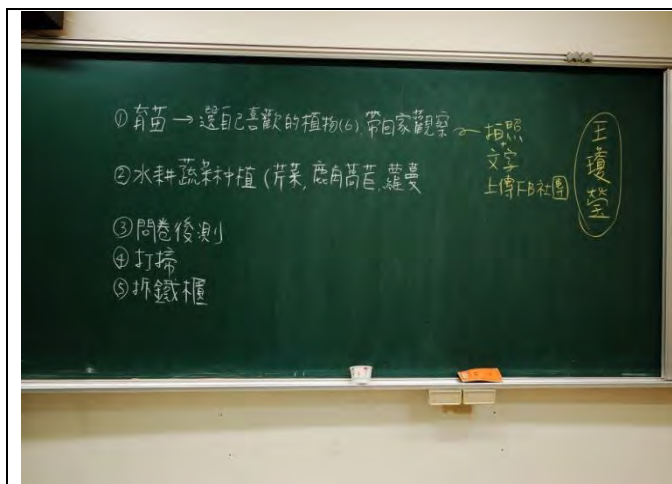 ①育苗→選自己喜歡的植物(6).帶回家觀察~拍照
+
文字
上傳FB社團
②水耕蔬菜种植(芹菜,鹿角萵苣,蘿蔓
③問卷後測
④打掃
⑤拆鐵櫃
王瓊瑩